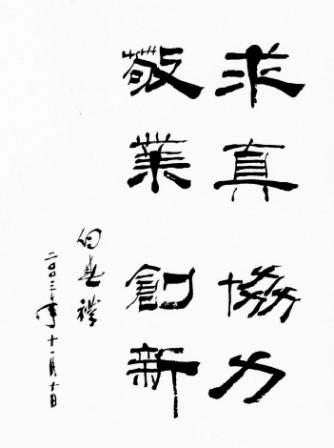 求真 協力
敬業 創新
白春禮
二〇〇三年十一月十日